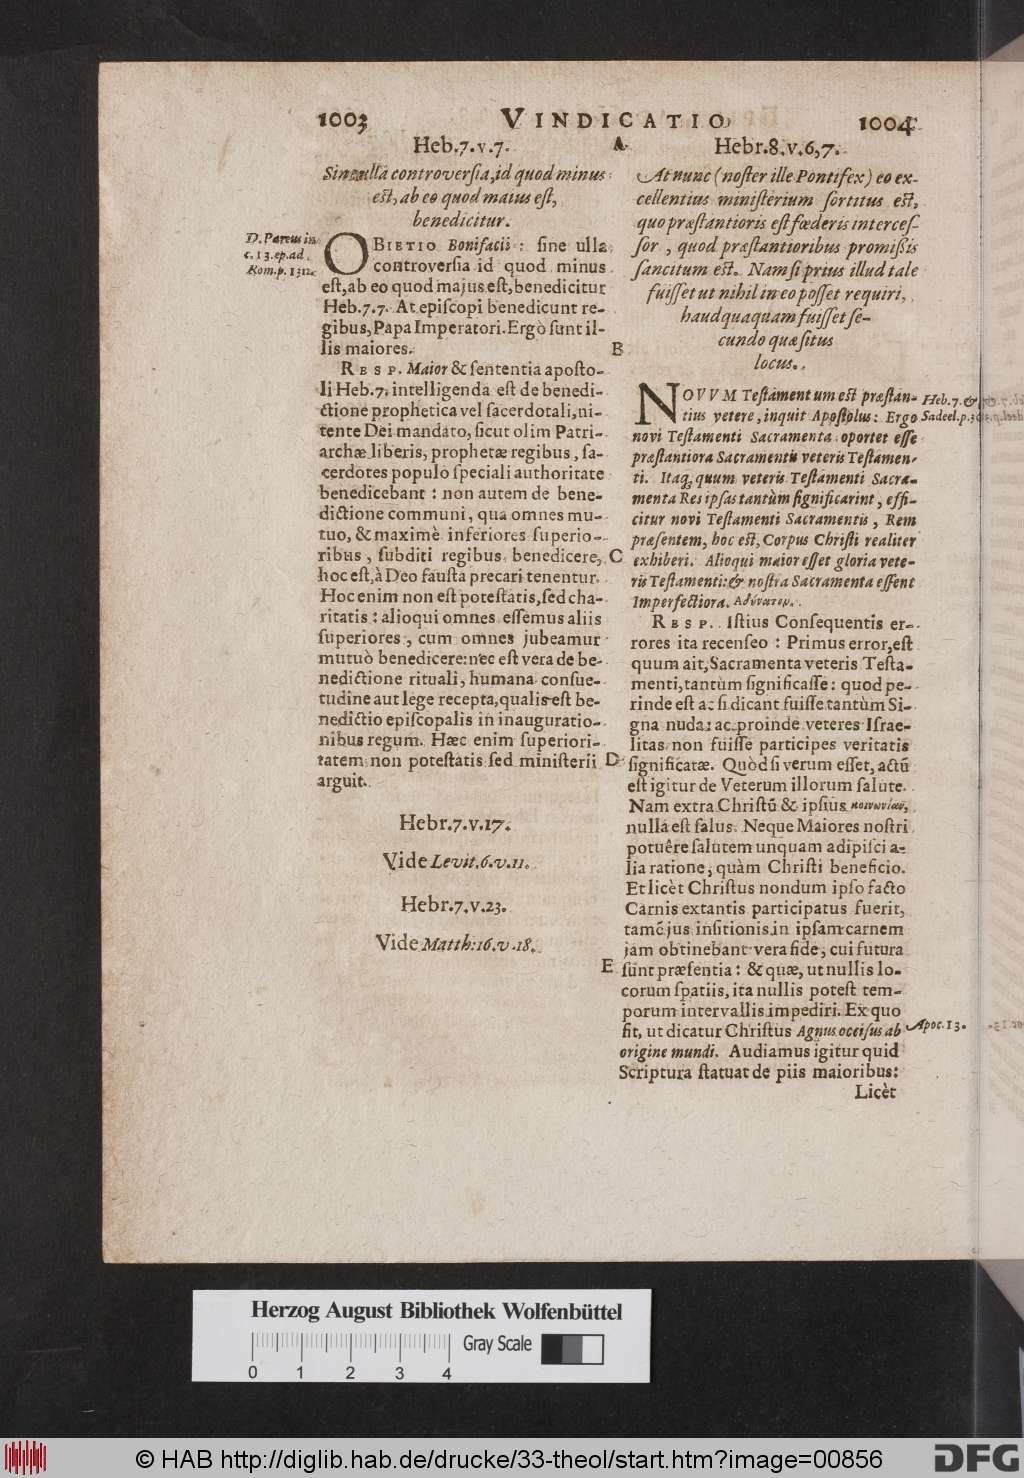 1003
VINDICATIO
1004
Heb.7.v.7.
Sine ulla controversia, id quod minus
est, ab eo quod maius est,
benedicitur.
D. Pareus in
c. 13. ep. ad
Rom. p. 1312.
OBIETIO Bonifacii: sine ulla
controversia id quod minus
est, ab eo quod majus est, benedicitur
Heb.7.7. At episcopi benedicunt re-
gibus, Papa Imperatori. Ergò sunt il-
lis maiores.
RESP. Maior & sententia aposto-
li Heb.7. intelligenda est de benedi-
ctione prophetica vel sacerdotali, ni-
tente Dei mandato, sicut olim Patri-
archæ liberis, prophetæ regibus, sa-
cerdotes populo speciali authoritate
benedicebant: non autem de bene-
dictione communi, qua omnes mu-
tuo, & maximè inferiores superio-
ribus, subditi regibus benedicere,
hoc est, à Deo fausta precari tenentur.
Hoc enim non est potestatis, sed cha-
ritatis: alioqui omnes essemus aliis
superiores, cum omnes jubeamur
mutuò benedicere: nec est vera de be-
nedictione rituali, humana consue-
tudine aut lege recepta, qualis est be-
nedictio episcopalis in inauguratio-
nibus regum. Hæc enim superiori-
tatem non potestatis sed ministerii
arguit.
Hebr.7.v.17.
Vide Levit.6.v.11.
Hebr.7.v.23.
Vide Matth:16.v.18.
A
B
C
D
E
Hebr.8.v.6,7.
At nunc (noster ille Pontifex) eo ex-
cellentius ministerium sortitus est,
quo præstantioris est fœderis interces-
sor, quod præstantioribus promißis
sancitum est. Nam si prius illud tale
fuisset ut nihil in eo posset requiri,
haudquaquam fuisset se-
cundo quæsitus
locus.
NOVVM Testamentum est præstan-
tius vetere, inquit Apostolus: Ergo
novi Testamenti Sacramenta oportet esse
præstantiora Sacramentis veteris Testamen-
ti. Itaq, quum veteris Testamenti Sacra-
menta Res ipsas tantùm significarint, effi-
citur novi Testamenti Sacramentis, Rem
præsentem, hoc est, Corpus Christi realiter
exhiberi. Alioqui maior esset gloria vete-
ris Testamenti: & nostra Sacramenta essent
Imperfectiora. Ἀδύνατον.
Heb.7. &
Sadeel.p.
RESP. Istius Consequentis er-
rores ita recenseo: Primus error, est
quum ait, Sacramenta veteris Testa-
menti, tantùm significasse: quod pe-
rinde est ac si dicant fuisse tantùm Si-
gna nuda: ac proinde veteres Israe-
litas non fuisse participes veritatis
significatæ. Quòd si verum esset, actū
est igitur de Veterum illorum salute.
Nam extra Christū & ipsius κοινωνίαν,
nulla est salus. Neque Maiores nostri
potuêre salutem unquam adipisci a-
lia ratione, quàm Christi beneficio.
Et licèt Christus nondum ipso facto
Carnis extantis participatus fuerit,
tamē jus insitionis in ipsam carnem
jam obtinebant vera fide, cui futura
sunt præsentia: & quæ, ut nullis lo-
corum spatiis, ita nullis potest tem-
porum intervallis impediri. Ex quo
fit, ut dicatur Christus Agnus occisus ab
origine mundi. Audiamus igitur quid
Scriptura statuat de piis maioribus:
Apoc.13.
Licèt
Herzog August Bibliothek Wolfenbüttel
Gray Scale
0 1 2 3 4
© HAB http://diglib.hab.de/drucke/33-theol/start.htm?image=00856
DFG